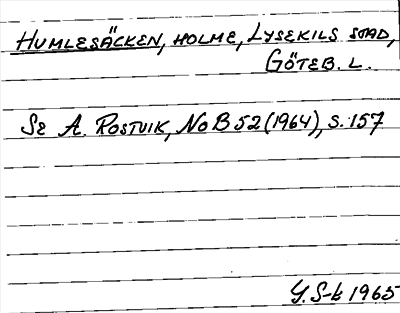 HUMLESÄCKEN, HOLME, LYSEKILS STAD,
GÖTEB. L.
SE A. ROSTVIK, NoB 52 (1964), S. 157
Y. S-b 1965